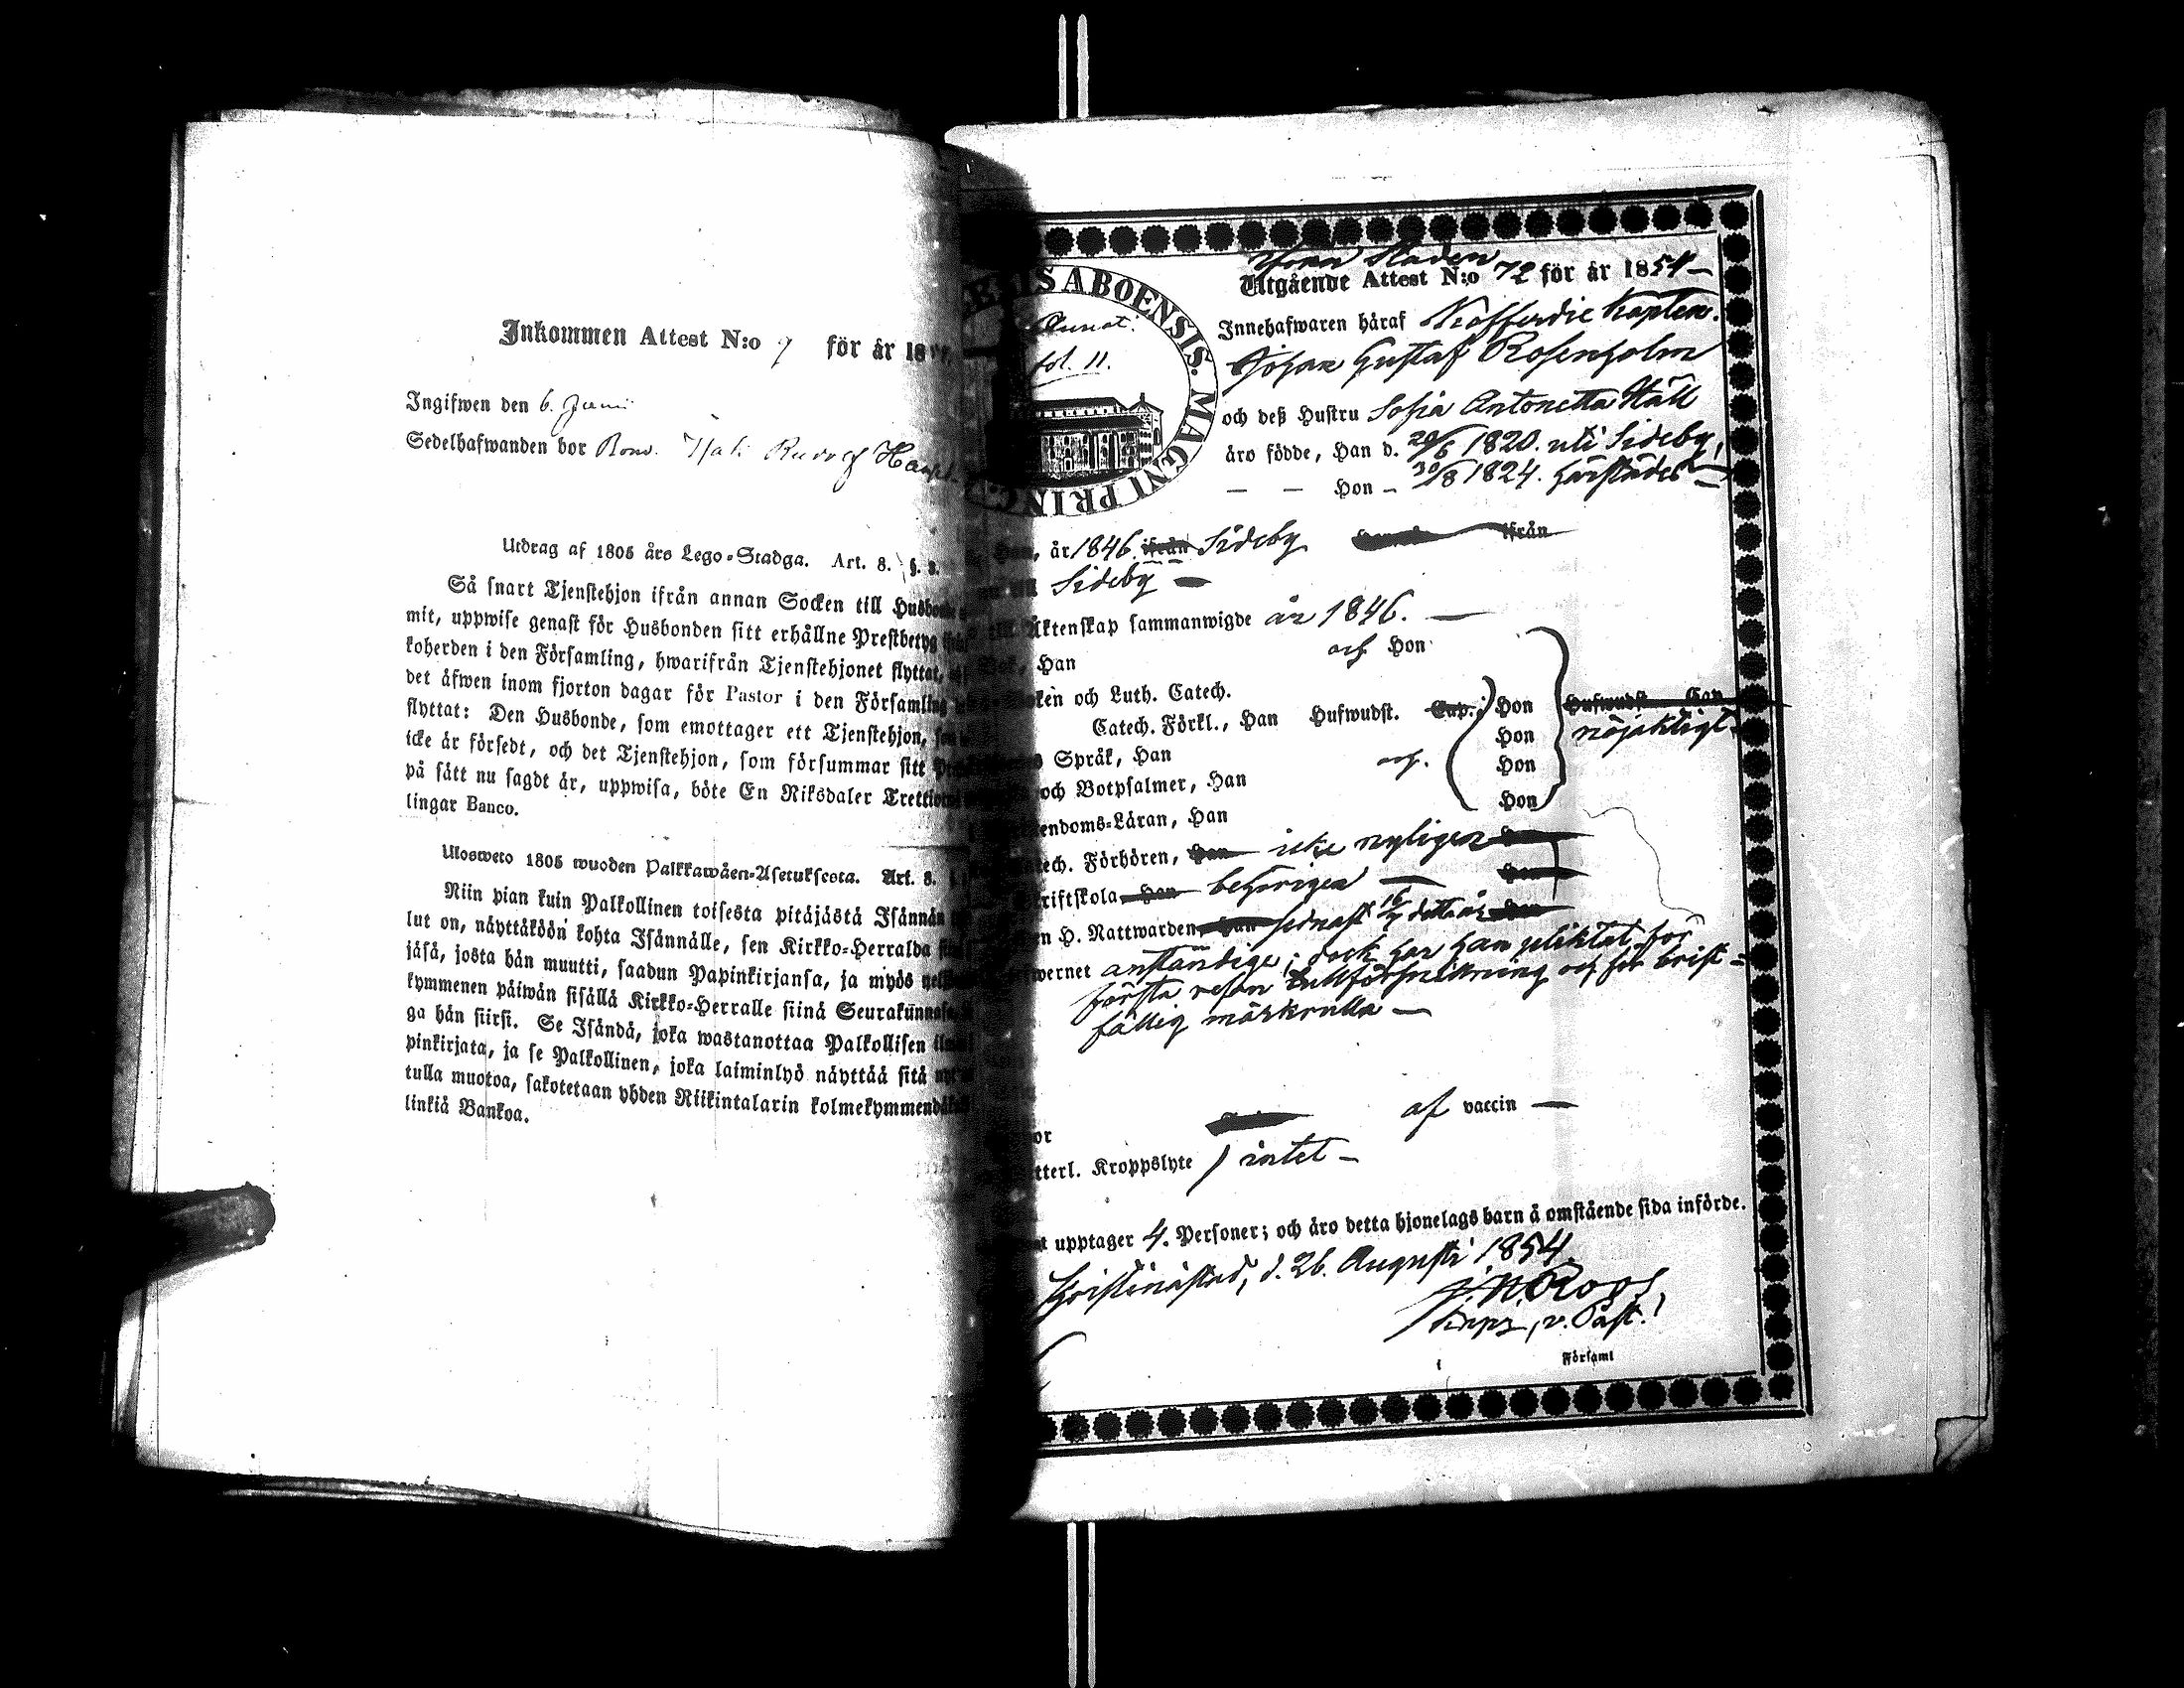 Inkommen Attest N:o 9 för år 18
Ingifwen den 6. Juni
Sedelhafwanden bor
Utdrag af 1805 års Lego-Stadga. Art. 8. §.
Så snart Tjenstehjon ifrån annan Socken till
mit, uppwise genast för Husbonden sitt erhållne Prestbetyg
koherden i den Församling, hwarifrån Tjenstehjonet flyttat,
det åfwen inom fjorton dagar för Pastor i den Församling
flyttat: Den Husbonde, som emottager ett Tjenstehjon,
icke är försedt, och det Tjenstehjon, som försummar sitt
på sått nu sagdt år, uppwisa, böte En Riksdaler
lingar Banco.
Ulosweto 1805 wuoden Palkkawåen-Asetuksesta. Art. 8.
Niin pian kuin Palkollinen toisesta pitåjåstå Isånnån
lut on, nåyttåköön kohta Isånnålle, sen Kirkko-Herralda
jåså, josta hån muutti, saadun Papinkirjansa, ja myös
kymmenen påiwån sisållå Kirkko-Herralle siinå
ga hån siirsi. Se Isåndå, joka wastanottaa Palkollisen
pinkirjata, ja se Palkollinen, joka laiminlyö nåyttåå sitå
tulla muotoa, sakotetaan yhden Riikintalarin
linkiå Bankoa.
ABOENSIS. MAGNI PRINC.
Annot:
fol. 11.
från staden
Utgående Attest N:o 72 för år 1854
Innehafwaren håraf Kofferdie Kapten.
Johan Gustaf Rosenholm
och deß Hustru Sofia Antonetta Häll
åro födde, Han d. 20/6 1820. uti Sideby,
— — Hon – 30/8 1824. härstädes
år 1846 ifrån Sideby ifrån
Sideby
Äktenskap sammanwigde år 1846.
Han och Hon
och Luth. Catech.
Catech. Förkl., Han Hufwudst. Cap.; Hon Hufwudst. Cap.
Hon nöjaktigt.
Språk, Han och Hon
och Botpsalmer, Han Hon
Låran, Han
Förhören, Han icke nyligen
Skriftskola Han behörigen
H. Nattwarden, Han sednast 16/7 detta år
anständige; dock har han pliktat för
första resan tullförsnillning och för brist-
fällig mörkrulla
af vaccin
Kroppslyte intet
upptager 4. Personer; och åro detta hjonelags barn å omstående sida införde.
Christinæstad, d. 26. Augusti 1854.
J. N. Roos
v. Past.
Församl